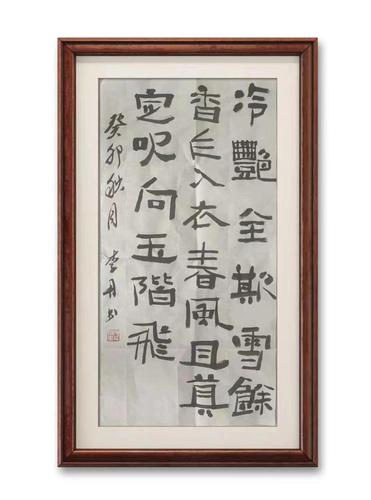 冷艷全欺雪餘
香乍入衣春風且莫
定吹向玉階飛
癸卯秋月 李丹书